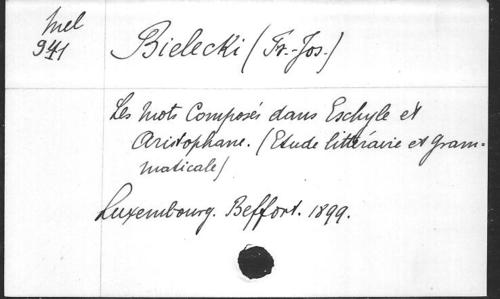 Mel
941
Bielecki (Fr.-Jos.)
Les Mots Composés dans Eschyle et
Aristophane. (Etude littéraire et gram-
maticale)
Luxembourg. Beffort. 1899.